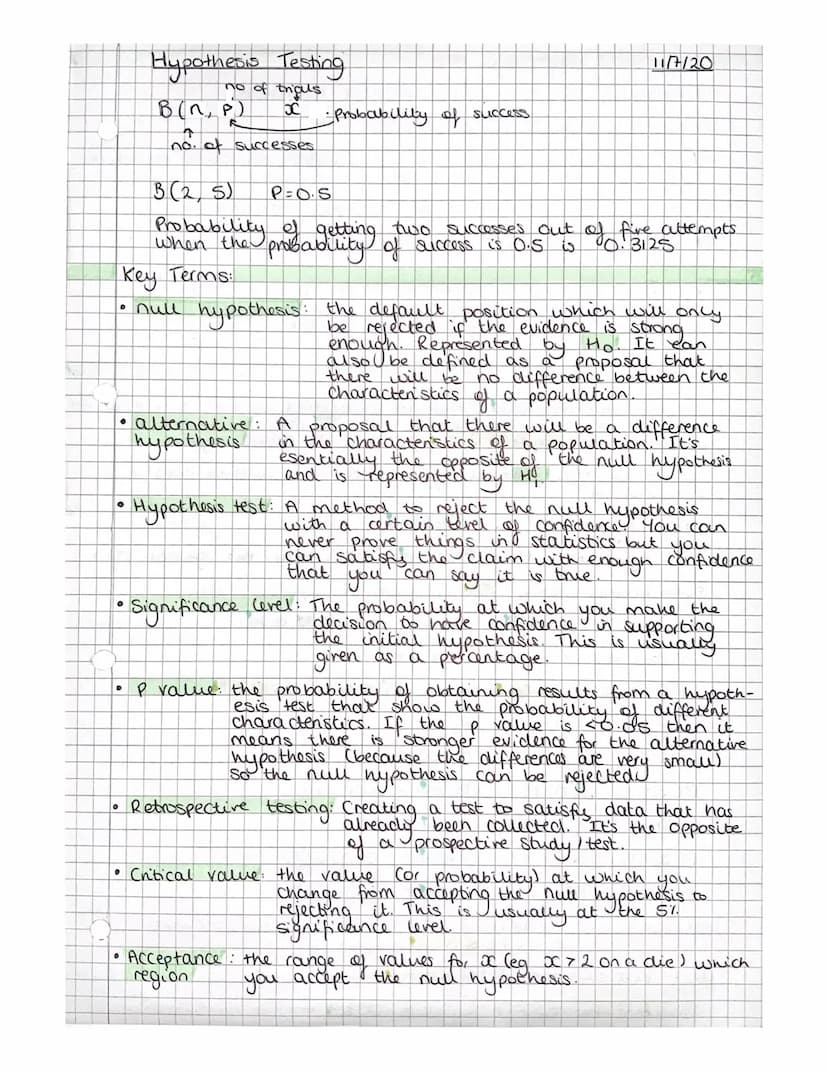 Hypothesis Testing 11/7/20
no of trials
B(n, p) x : probability of success
no. of successes
B(2, 5) P=0.5
Probability of getting two successes out of five attempts
when the probability of success is 0.5 is 0.3125
Key Terms:
• null hypothesis: the default position which will only
be rejected if the evidence is strong
enough. Represented by H₀. It can
also be defined as a proposal that
there will be no difference between the
characteristics of a population.
• alternative : A proposal that there will be a difference
hypothesis in the characteristics of a population. It's
esentially the opposite of the null hypothesis
and is represented by H₁
• Hypothesis test: A method to reject the null hypothesis
with a certain level of confidence. You can
never prove things in statistics but you
can satisfy the claim with enough confidence
that you can say it is true.
• Significance level: The probability at which you make the
decision to have confidence in supporting
the initial hypothesis. This is usually
given as a percentage.
• P value: the probability of obtaining results from a hypoth-
esis test that show the probability of different
characteristics. If the p value is <0.05 then it
means there is stronger evidence for the alternative
hypothesis (because the differences are very small)
so the null hypothesis can be rejected
• Retrospective testing: Creating a test to satisfy data that has
already been collected. It's the opposite
of a prospective study/test.
• Critical value: the value (or probability) at which you
change from accepting the null hypothesis to
rejecting it. This is usually at the 5%
significance level.
• Acceptance : the range of values for x (eg x > 2 on a die) which
region you accept the null hypothesis.